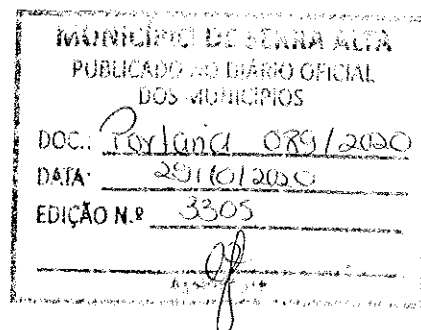 MUNICÍPIO DE SERRA ALTA
PUBLICADO NO DIÁRIO OFICIAL
DOS MUNICÍPIOS
DOC.: Portaria 089/2020
DATA: 29/10/2020
EDIÇÃO N.º 3305